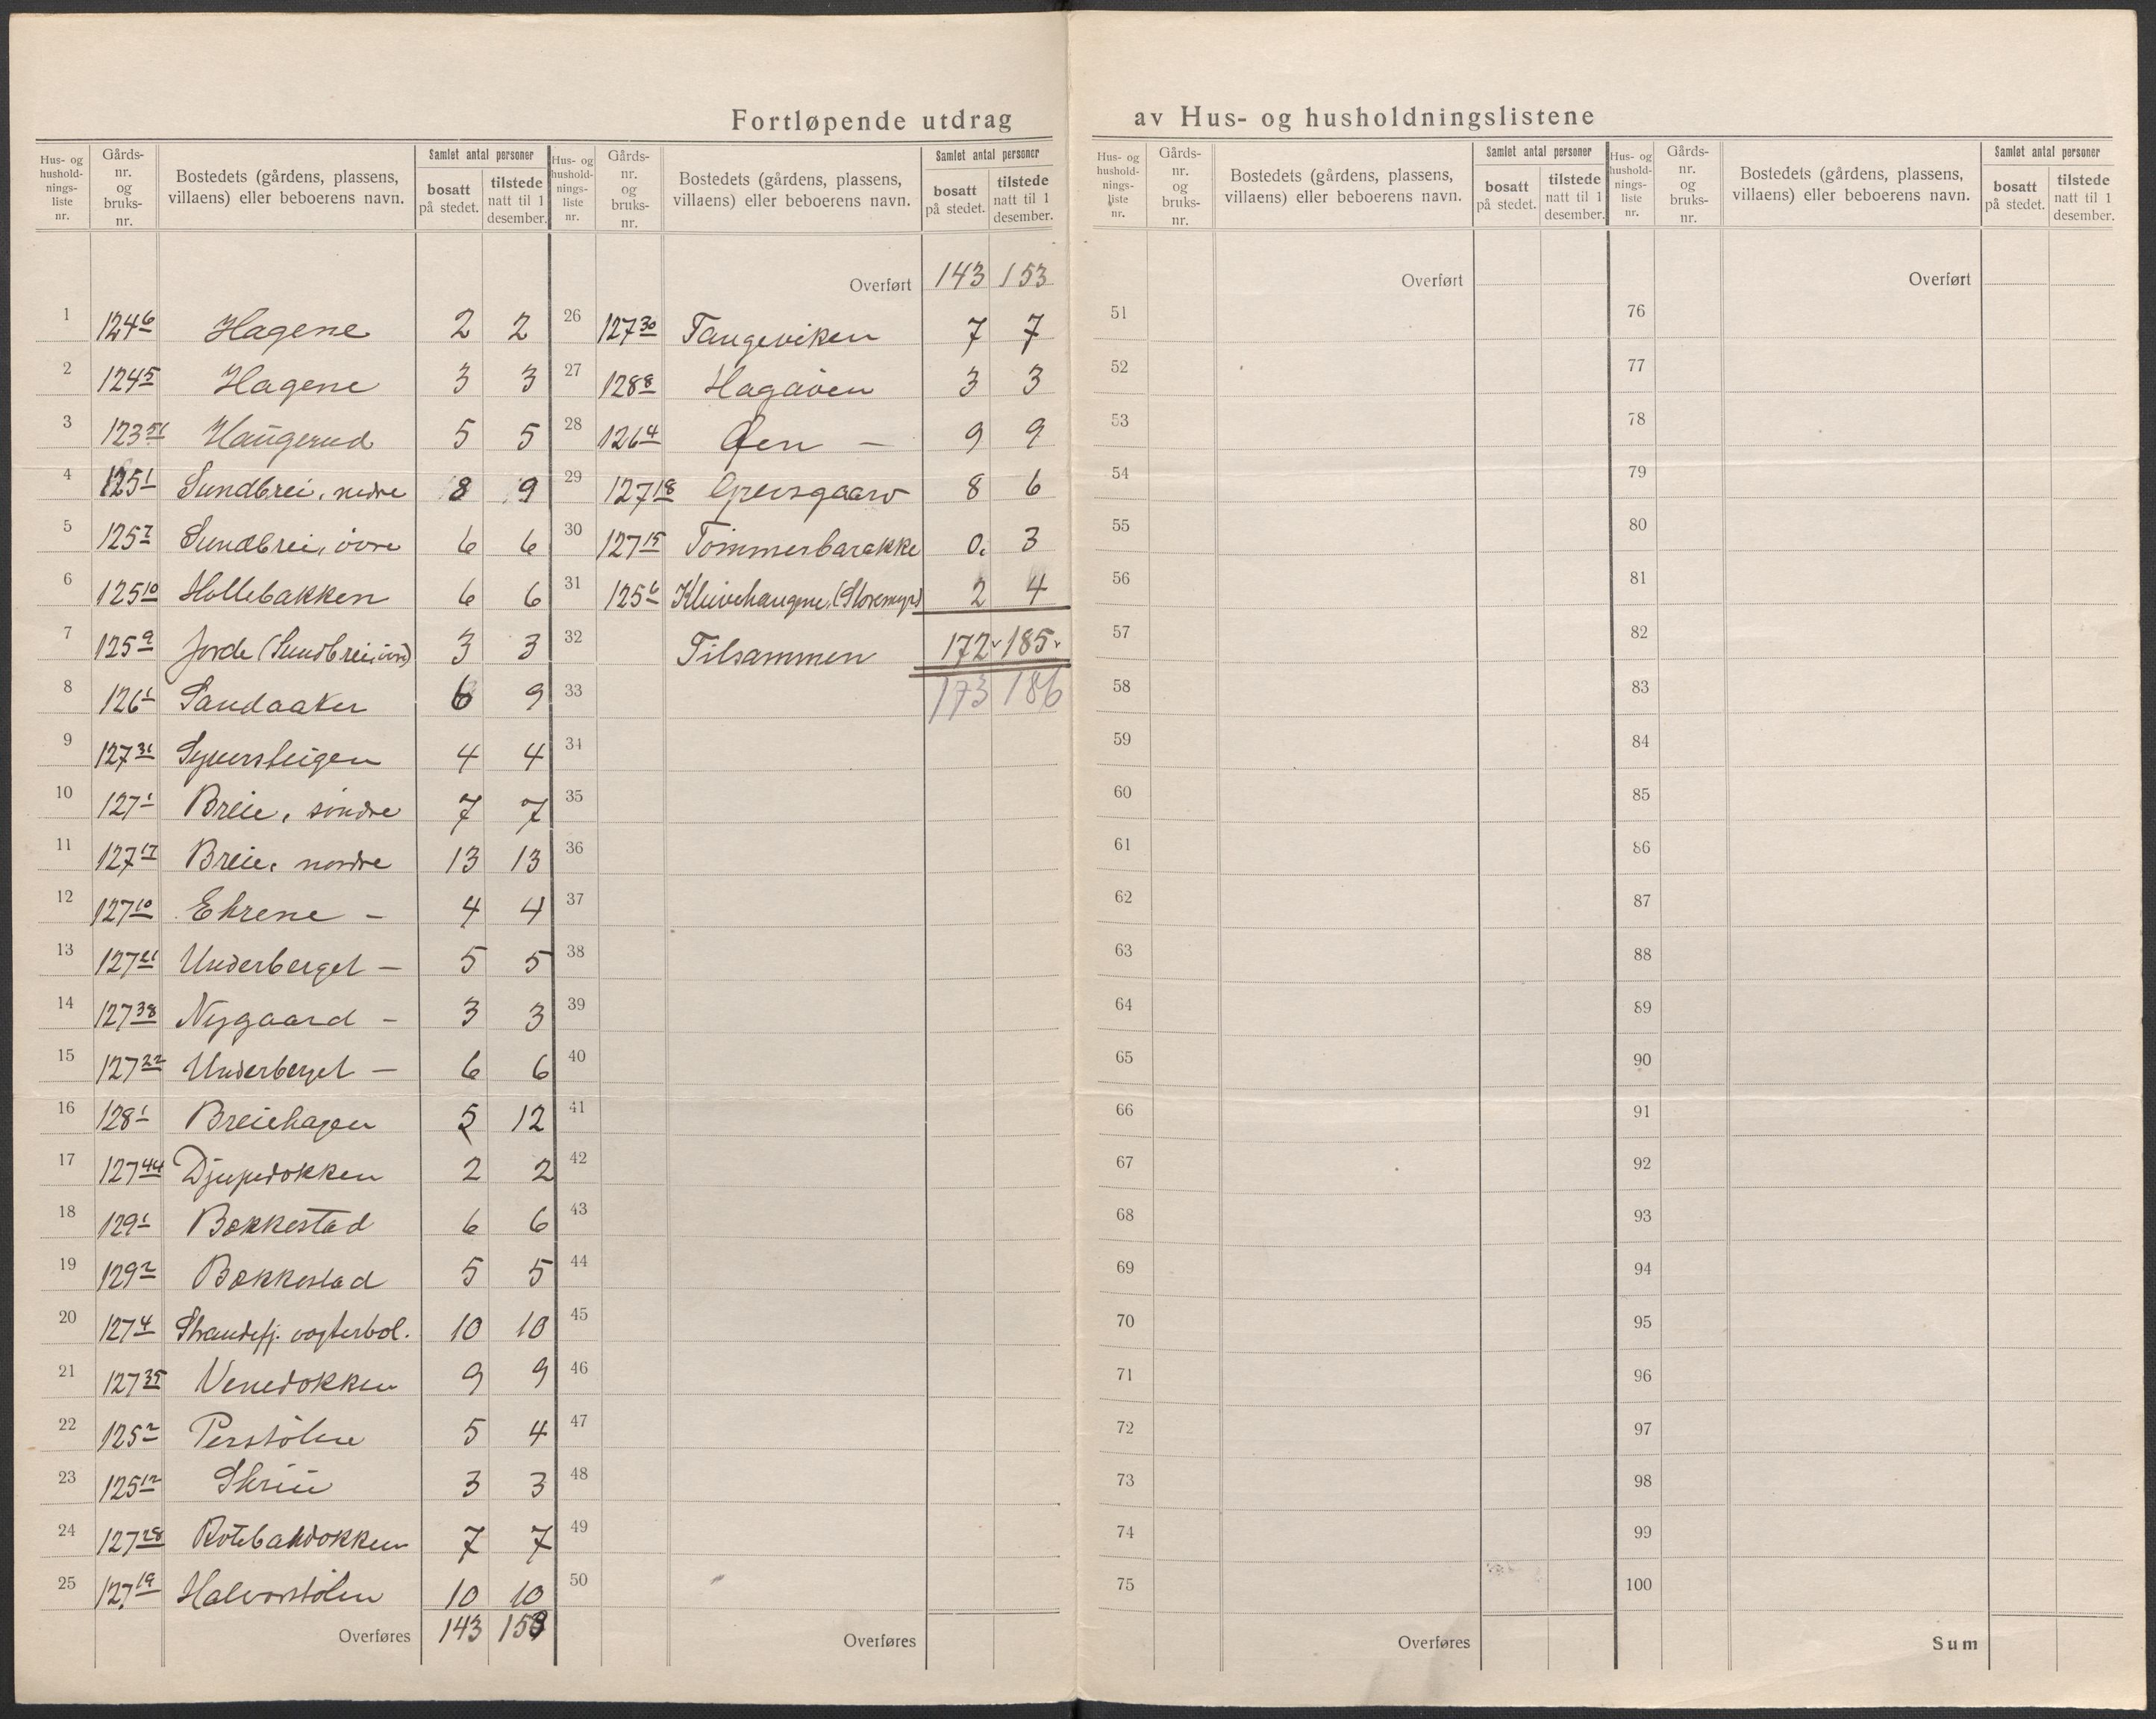 Fortløpende utdrag av Hus- og husholdningslistene
Hus- og husholdnings-liste nr. Gårds-nr. og bruks-nr. Bostedets (gårdens, plassens, villaens) eller beboerens navn. Samlet antal personer bosatt på stedet. tilstede natt til 1 desember.
1 124 6 Hagene 2 2
2 124 5 Hagene 3 3
3 123 51 Haugerud 5 5
4 125 1 Sundbrei, nedre 8 9
5 125 7 Sundbrei, övre 6 6
6 125 10 Hollebakken 6 6
7 125 9 Jorde (Sundbrei, övre) 3 3
8 126 1 Sandaaker 6 9
9 127 31 Syversteigen 4 4
10 127 1 Breie, söndre 7 7
11 127 17 Breie, nordre 13 13
12 127 10 Ekrene – 4 4
13 127 21 Underberget – 5 5
14 127 38 Nygaard – 3 3
15 127 22 Underberget – 6 6
16 128 1 Breiehagen 5 12
17 127 44 Djupedokken 2 2
18 129 1 Bækkestad 6 6
19 129 2 Bækkestad 5 5
20 127 4 Strandefj. vogterbol. 10 10
21 127 35 Venedokken 9 9
22 125 2 Perstölen 5 4
23 125 12 3 3
24 127 28 7 7
25 127 19 Halvorstölen 10 10
Overføres 143 153
Hus- og husholdnings-liste nr. Gårds-nr. og bruks-nr. Bostedets (gårdens, plassens, villaens) eller beboerens navn. Samlet antal personer bosatt på stedet. tilstede natt til 1 desember.
Overført 143 153
26 127 30 Tangeviken 7 7
27 128 8 Hagaöen 3 3
28 126 4 Øen – 9 9
29 127 18 8 6
30 127 15 Tömmerbarakke 0. 3
31 125 6 Kleivehaugene (Storemyr) 2 4
32 Tilsammen 172 185
33 173 186
34
35
36
37
38
39
40
41
42
43
44
45
46
47
48
49
50
Overføres
Hus- og husholdnings-liste nr. Gårds-nr. og bruks-nr. Bostedets (gårdens, plassens, villaens) eller beboerens navn. Samlet antal personer bosatt på stedet. tilstede natt til 1 desember.
Overført
51
52
53
54
55
56
57
58
59
60
61
62
63
64
65
66
67
68
69
70
71
72
73
74
75
Overføres
Hus- og husholdnings-liste nr. Gårds-nr. og bruks-nr. Bostedets (gårdens, plassens, villaens) eller beboerens navn. Samlet antal personer bosatt på stedet. tilstede natt til 1 desember.
Overført
76
77
78
79
80
81
82
83
84
85
86
87
88
89
90
91
92
93
94
95
96
97
98
99
100
Sum